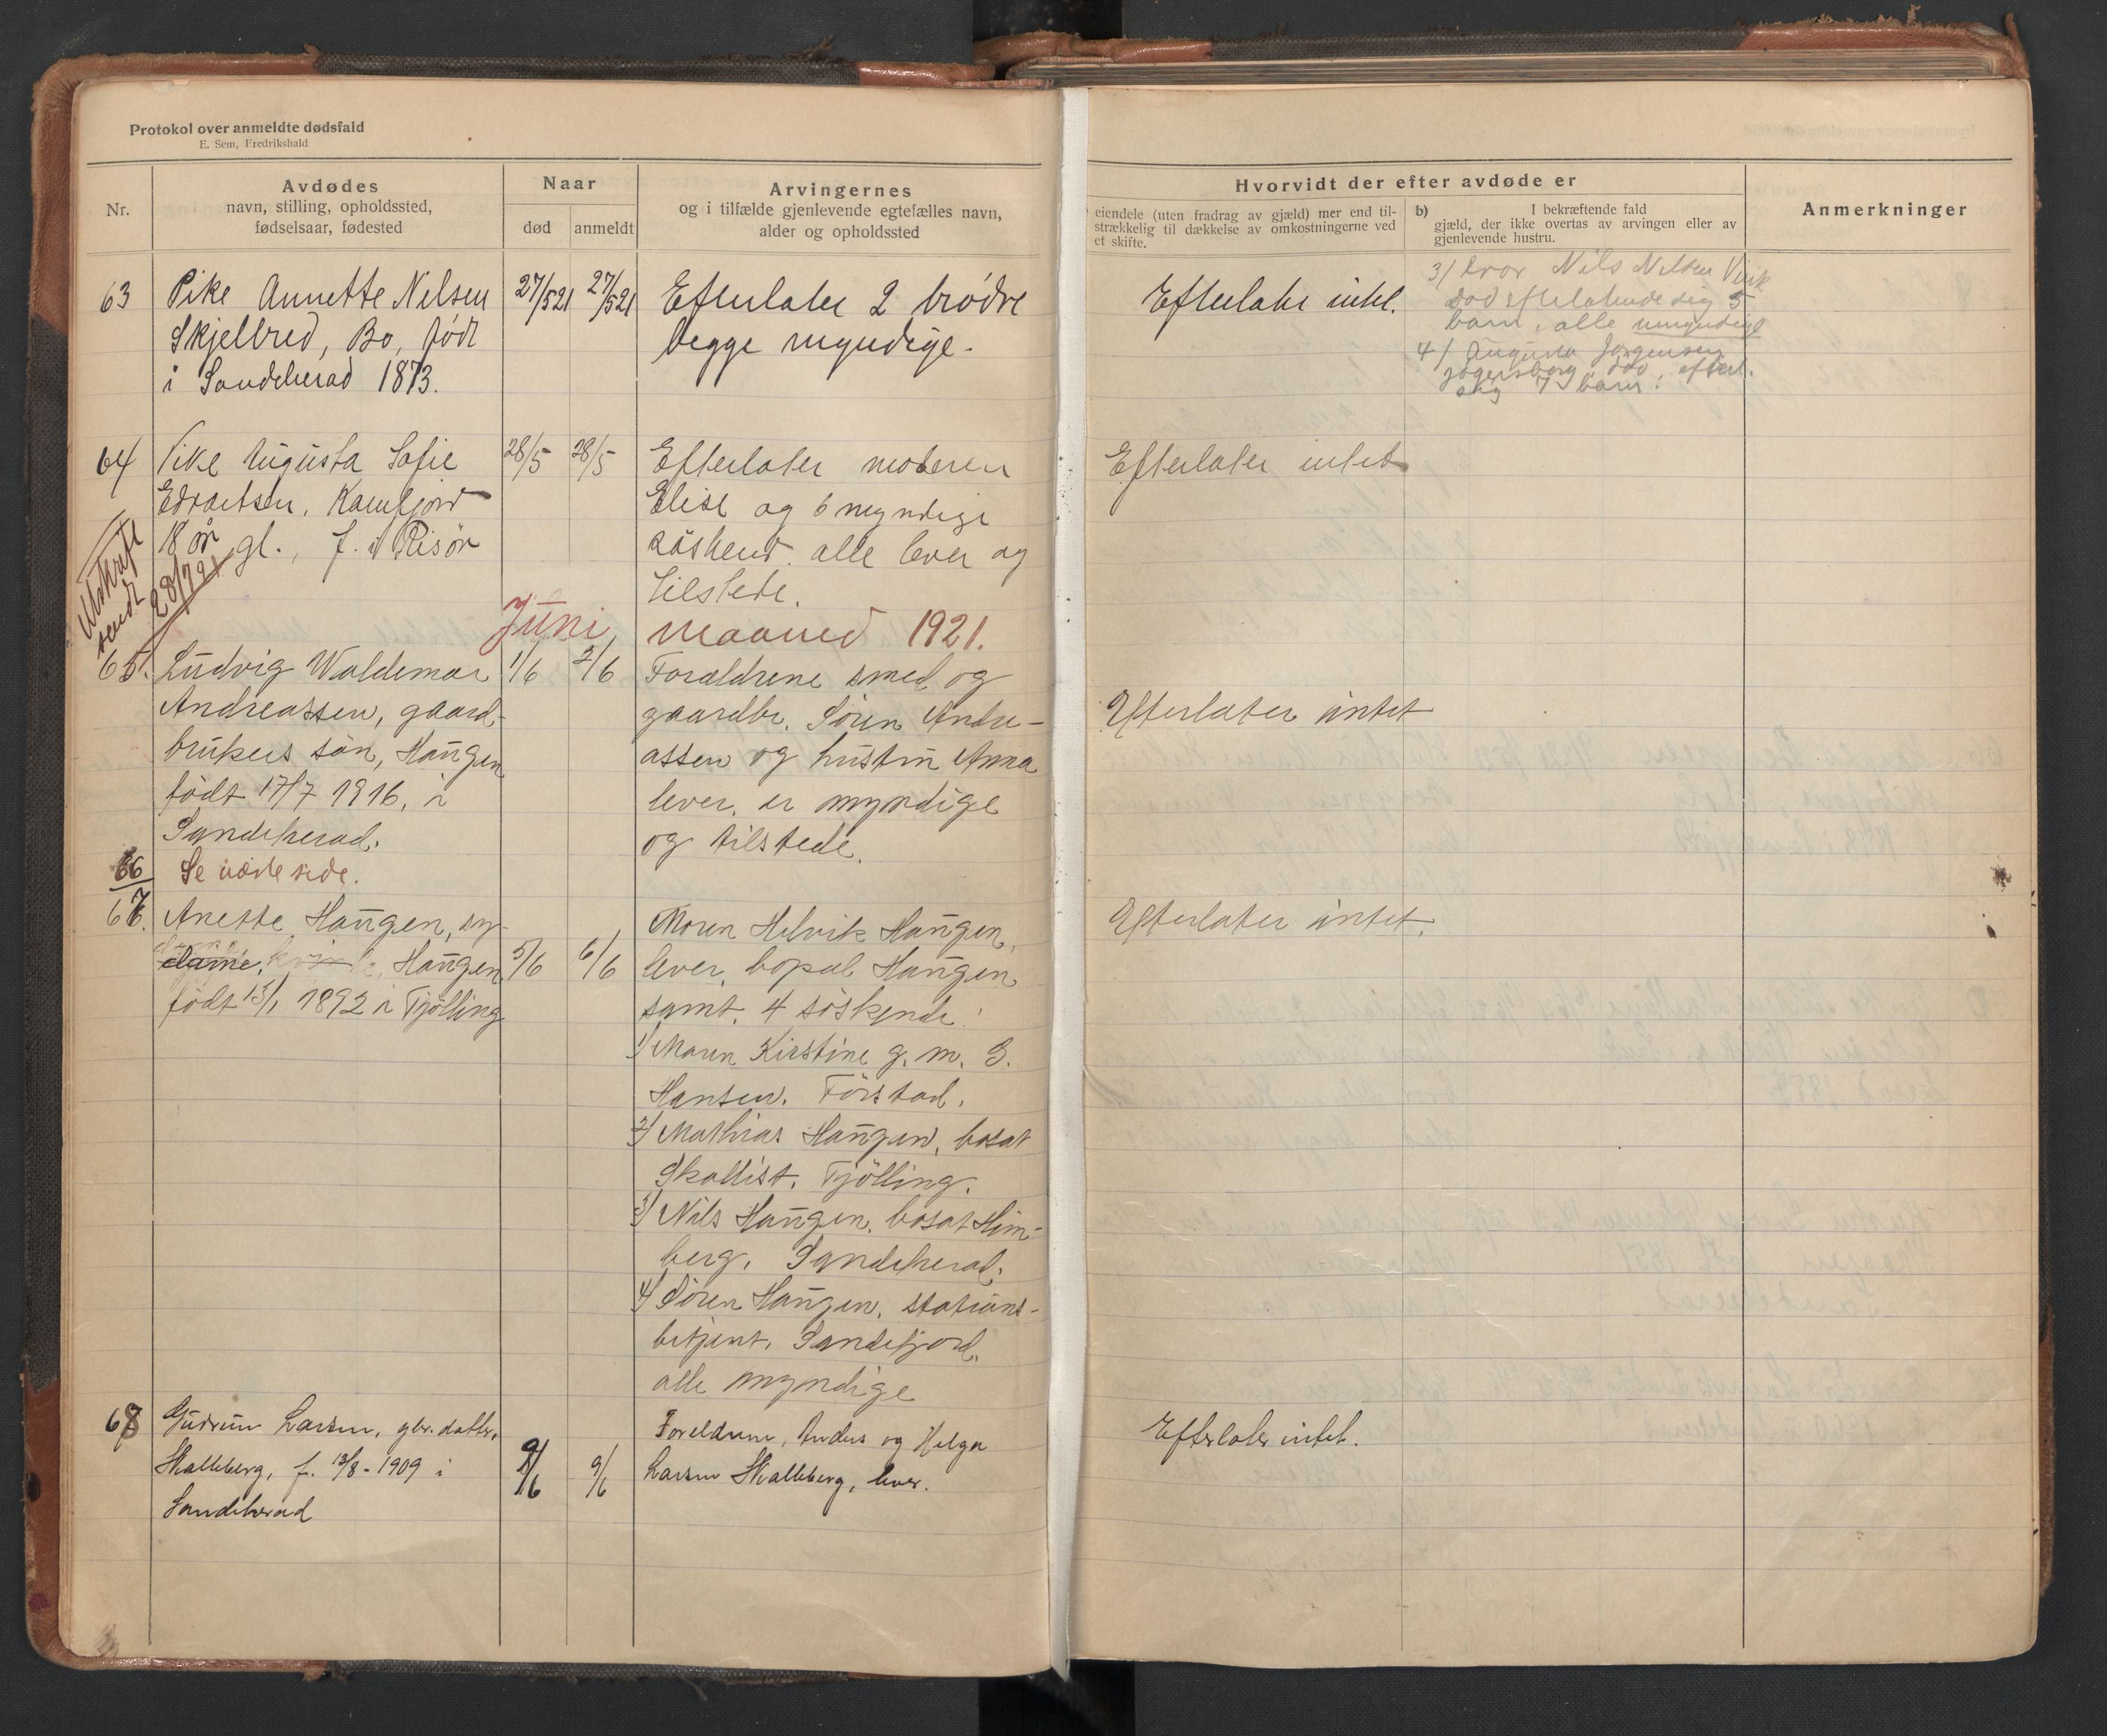 Protokol over anmeldte dødsfald
E. Sem, Fredrikshald
Nr.
Avdødes
navn, stilling, opholdssted,
fødselsaar, fødested
Naar
død
anmeldt
Arvingernes
og i tilfælde gjenlevende egtefælles navn,
alder og opholdssted
Hvorvidt der efter avdøde er
eiendele (uten fradrag av gjæld) mer end til-
strækkelig til dækkelse av omkostningerne ved
et skifte.
b) I bekræftende fald
gjæld, der ikke overtas av arvingen eller av
gjenlevende hustru.
Anmerkninger
63 Pike Annette Nilsen 27/5 21 27/5 21 Efterlater 2 brødre Efterlater intet.
Skjelbred, Bo, født begge myndige.
i Sandeherad 1873.
3/ bror Nils Nilsen Virik
død efterlatende sig 5
barn, alle umyndige
4/ Augusta Jørgensen
død, efterl.
sig 7 barn.
64 Pike Augusta Sofie 28/5 28/5 Efterlater moderen Efterlater intet
Edvartsen, Kamfjord Elise og 6 myndige
18 år gl., f. i Risør søskend. alle lever og
tilstede.
Utskrift
sendt 28/7 21
Juni maaned 1921.
65. Ludvig Waldemar 1/6 2/6 Forældrene smed og
Andreassen, gaard- gaardbr. Søren Andre- Efterlater intet
brukers søn, Haugen assen og hustru Anna
født 17/7 1916, i lever, er myndige
Sandeherad. og tilstede.
66 Se næste side.
67. Anette Haugen, sy- Moren Helvik Haugen, Efterlater intet.
dame, Haugen 5/6 6/6 lever, bopæl Haugen
født 13/1 1892 i Tjølling samt. 4 søskende
1/ Maren Kirstine g. m. G.
Hansen. Førstad.
2/ Mathias Haugen, bosat
Skallist. Tjølling.
3/ Nils Haugen. bosat Him-
berg. Sandeherad.
4/ Søren Haugen. stations-
betjent. Sandefjord.
alle myndige
68 Gudrun Larsen, gbr. datter, Foreldrene, Anders og Helga Efterlater intet.
Skalleberg, f. 13/8-1909 i 9/6 9/6 Larsen Skalleberg, lever.
Sandeherad